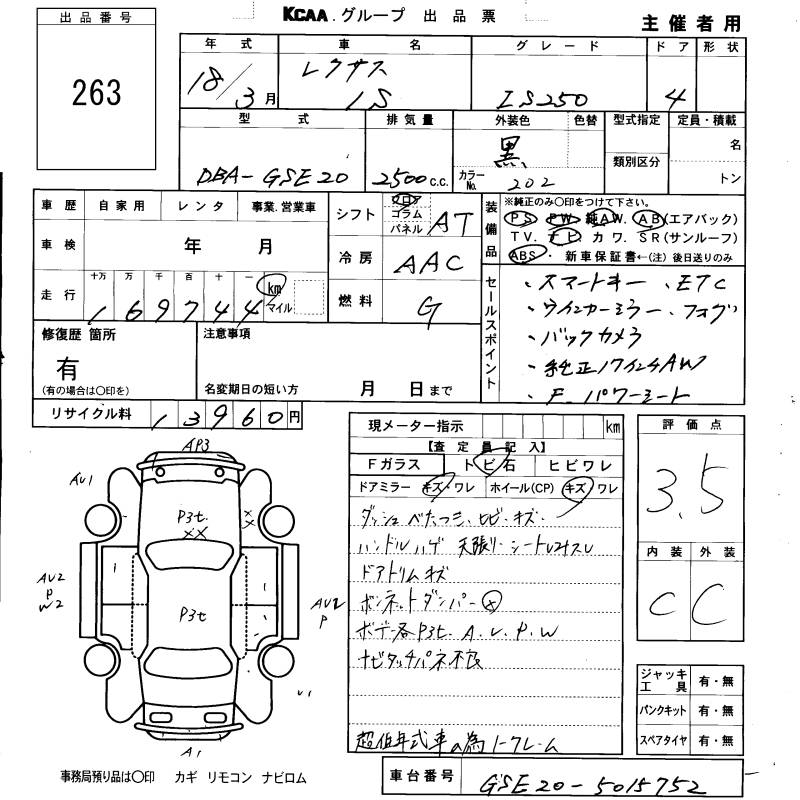 KCAA.グループ 出品票
主催者用
出品番号
263
年式 車名 グレード ドア 形状
18/3月 レクサス IS IS250 4
型式 排気量 外装色 色替 型式指定 定員・積載
DBA-GSE20 2500c.c. 黒 カラーNo. 202 類別区分 名 トン
車歴 自家用 レンタ 事業.営業車
シフト フロア コラム パネル AT
車検 年 月
冷房 AAC
走行 十万 万 千 百 十 一 km マイル
169744
燃料 G
装備品 ※純正のみ○印をつけて下さい。
PS PW 純AW. AB(エアバック)
TV. ナビ カワ. SR(サンルーフ)
ABS・ 新車保証書←(注) 後日送りのみ
セールスポイント
・スマートキー ・ETC
・ウインカーミラー ・フォグ
・バックカメラ
・純正17インチAW
・F パワーシート
修復歴 箇所
有
(有の場合は○印を)
注意事項
名変期日の短い方 月 日まで
リサイクル料 13960円
現メーター指示 km
【査定員記入】
Fガラス トビ石 ヒビワレ
ドアミラー キズ・ワレ ホイール(CP) キズ ワレ
ダッシュ べたつき、ヒビ・キズ・
ハンドルハゲ 天張り・シートU2オスレ
ドアトリムキズ
ボンネットダンパー
ボデー各P3t. A. U. P. W
ナビタッチパネ不良
超低年式車の為ノークレーム
評価点
3.5
内装 外装
C C
ジャッキ工具 有・無
パンクキット 有・無
スペアタイヤ 有・無
車台番号 GSE20-5015752
AP3
AU1
P3t.
XX
XX
AU2
P
W2
P3t
AU2
P
U1
A1
事務局預り品は○印 カギ リモコン ナビロム